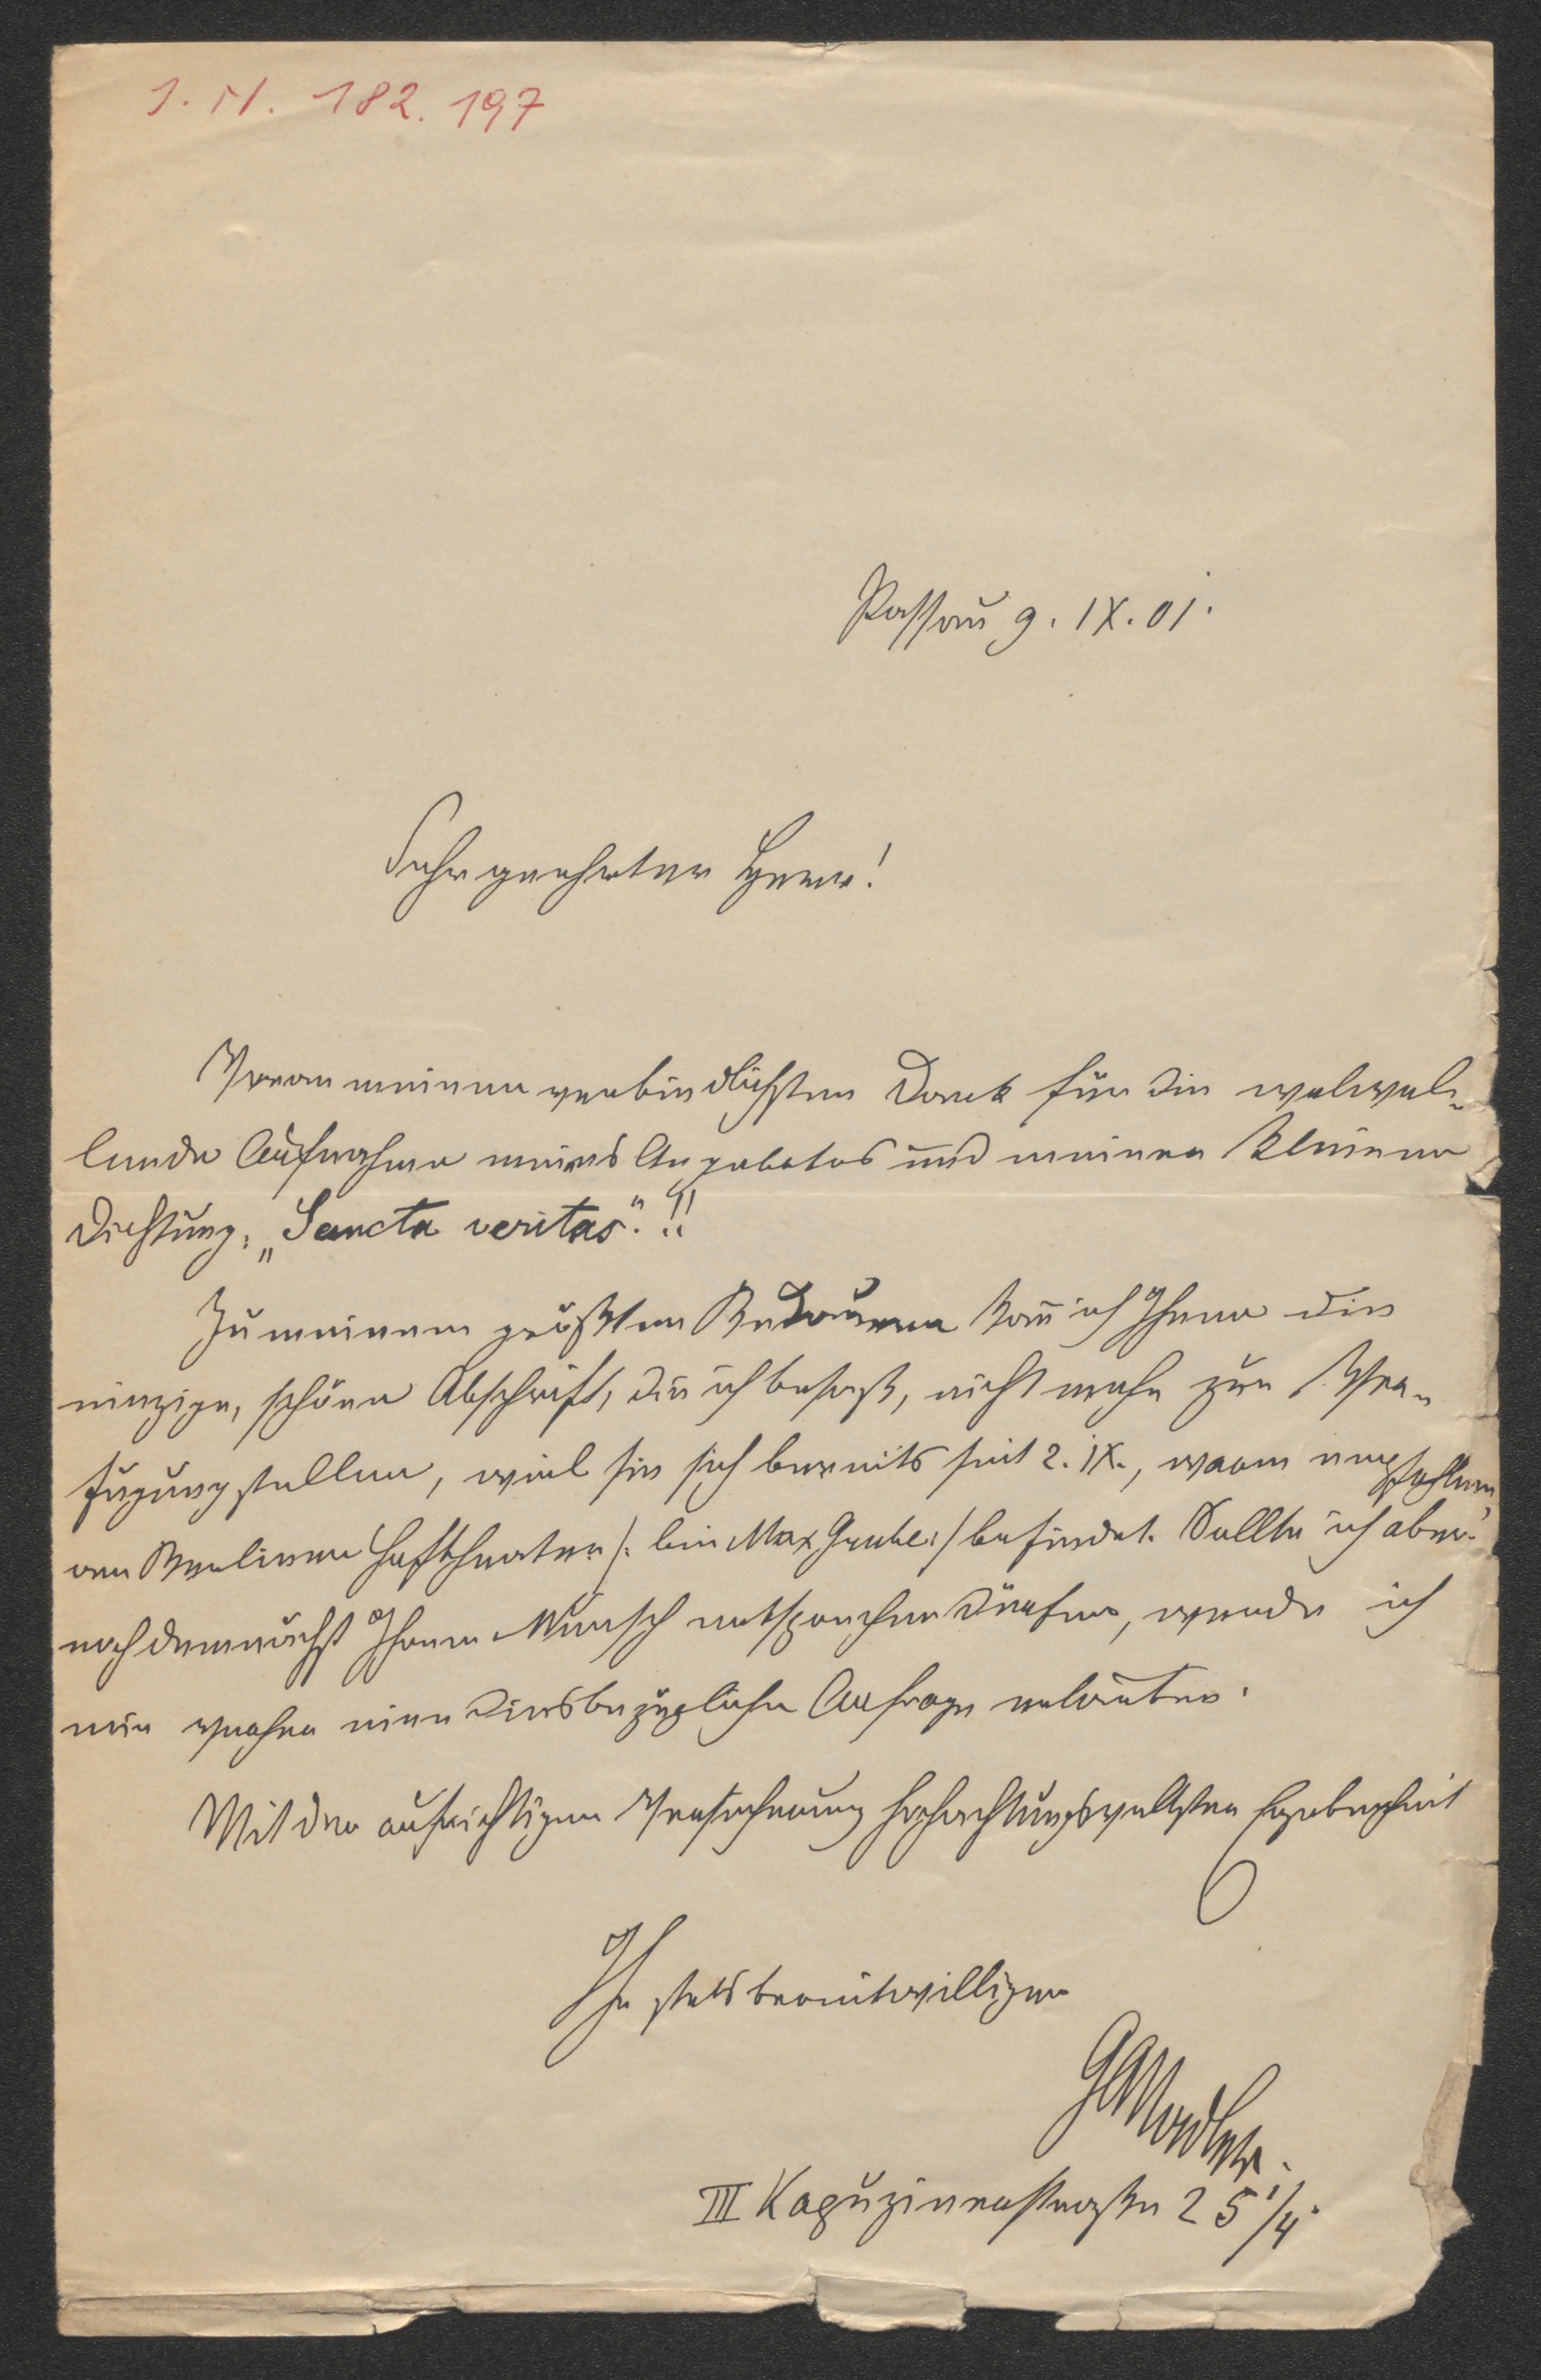 J. N. 182.197
Passau 9. IX. 01.
Sehr geehrter Herr!
Voran meinen verbindlichsten Dank für die wolwol-
lende Aufnahme meines Angebotes und meiner kleinen
Dichtung: „Sancta veritas“.!!
Zu meinem größten Bedauern kann ich Ihnen die
einzige, schöne Abschrift, die ich besaß, nicht mehr zur Ver-
fügung stellen, weil sie sich bereits seit 2. IX., warm empfohlen,
am Berliner Hoftheater /: bei Max Grube :/ befindet. Sollte ich aber
noch demnächst Ihrem Wunsch entsprechen dürfen, werde ich
mir vorher eine diesbezügliche Anfrage erlauben.
Mit der aufrichtigen Versicherung hochachtungsvollster Ergebenheit
Ihr stets bereitwilliger
III Kapuzinerstraße 25 1/4